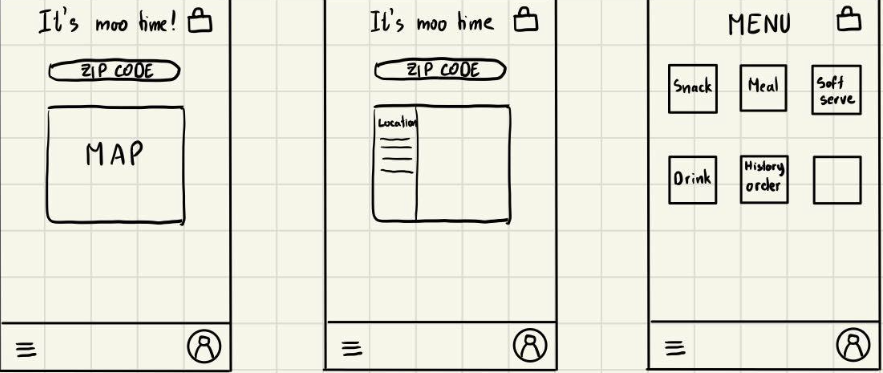 It's moo time!
ZIP CODE
MAP
It's moo time
ZIP CODE
Location
MENU
Snack
Meal
Soft
serve
Drink
History
order